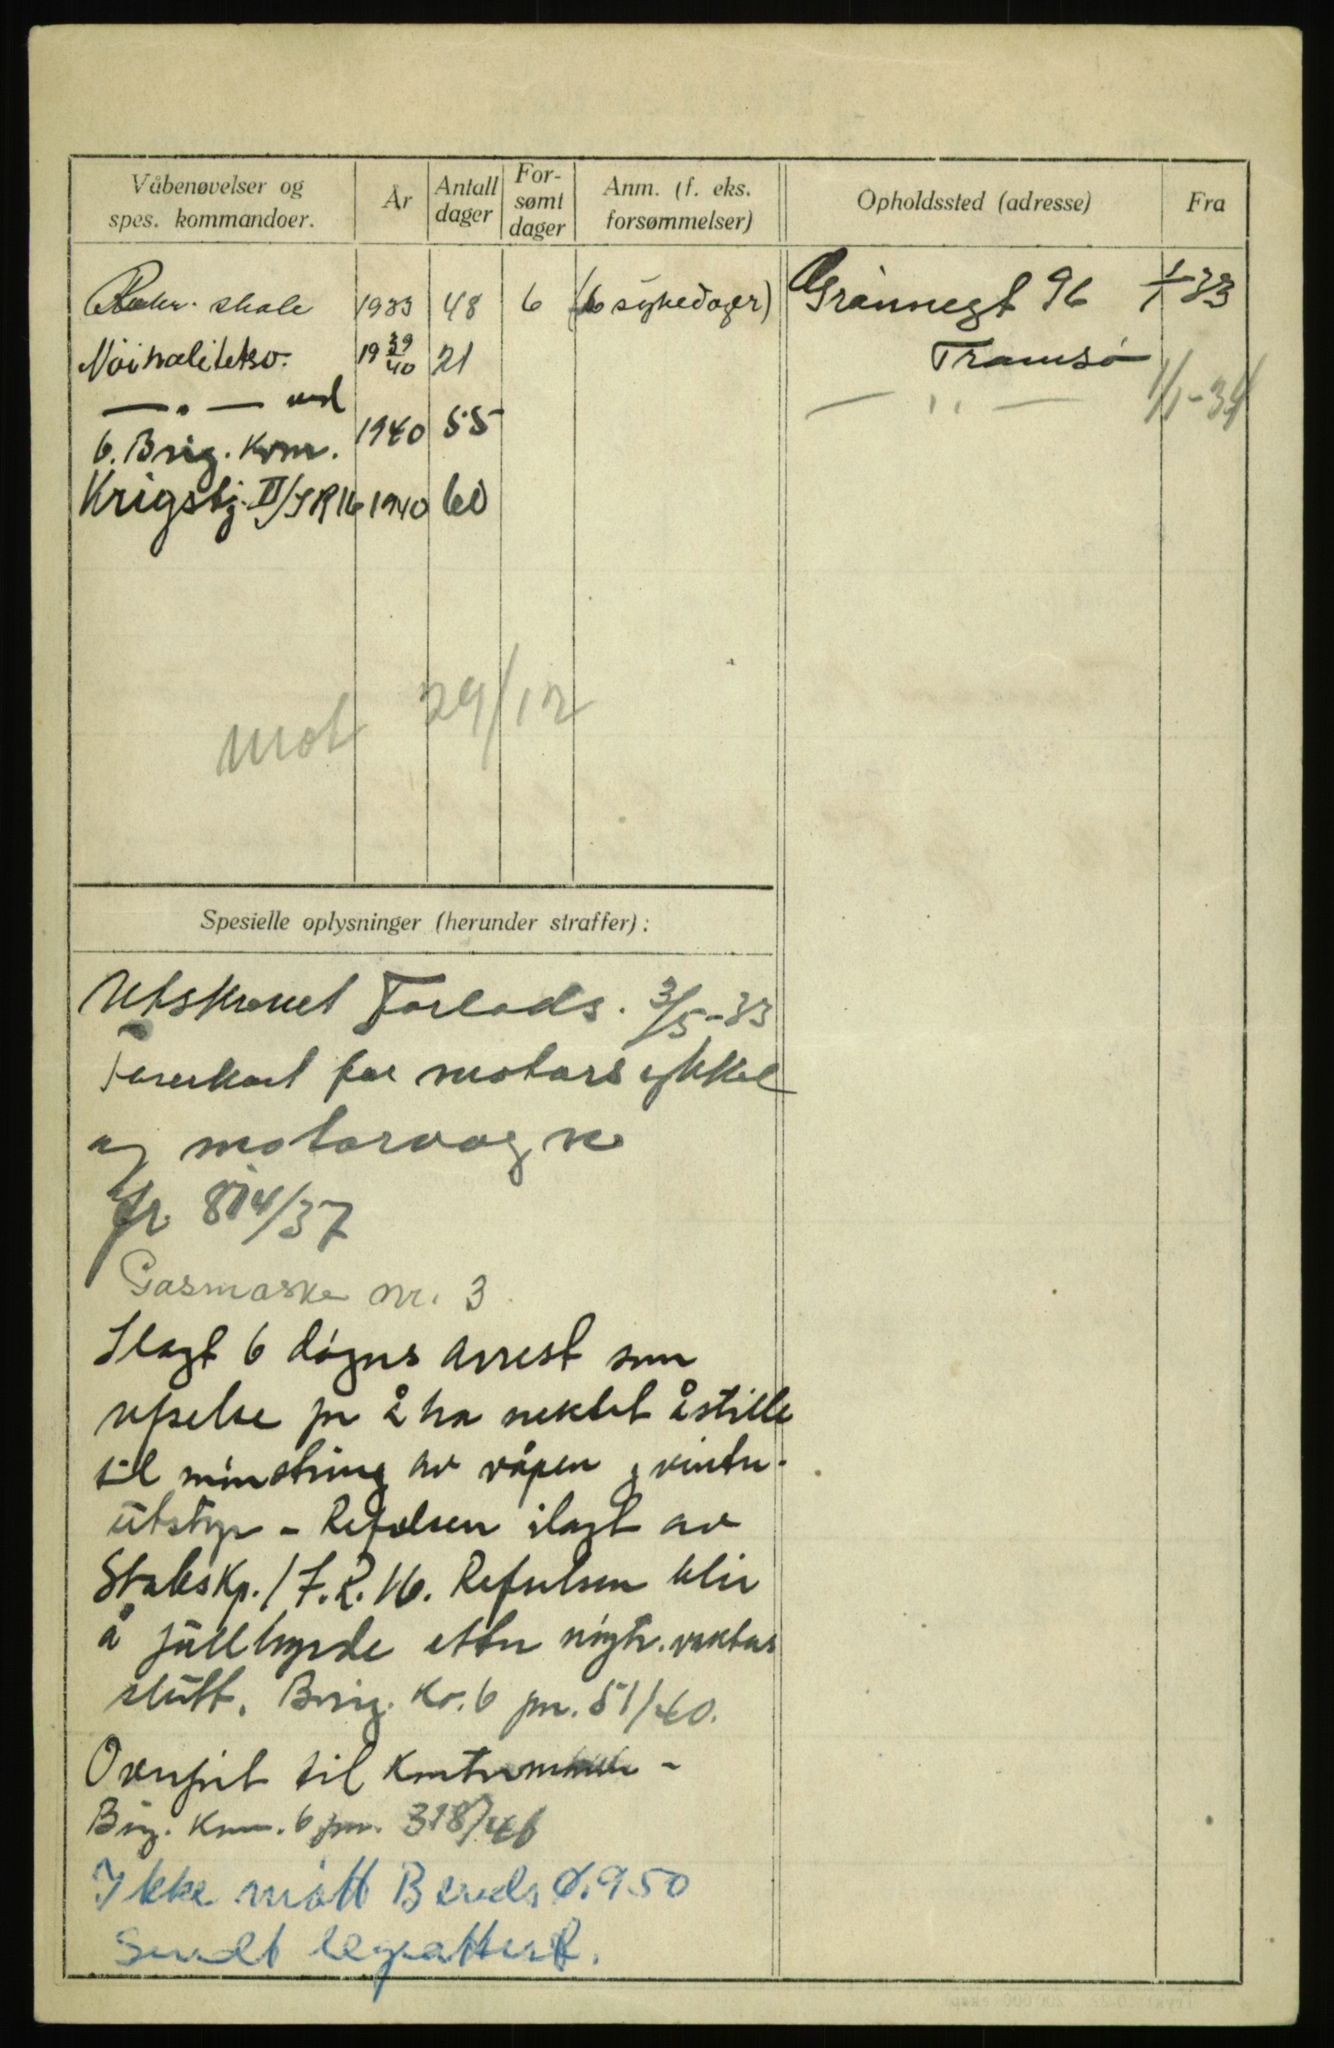 Våbenøvelser og spes. kommandoer. År Antall dager For-sømt dager Anm. (f. eks. forsømmelser) Opholdssted (adresse) Fra
Rekr. skole 1933 48 6 (6 sykedager) Grönnegt 96 1/1-33
Tromsö
Nöitralitetsv. 19 39/40 21
— " — 1/1-34
— " — ved
6. Brig. Kom. 1940 55
Krigstj. II/IR16 1940 60
mot 29/12
Spesielle oplysninger (herunder straffer):
Utskrevet Forlads. 3/5-33
Förerkort for motorsykkel
og motorvogn
Jfr. 814/37
Gasmaske nr. 3
Ilagt 6 døgns arrest som
refselse for å ha nektet å stille
til mönstring av våpen og vinter-
utstyr - Refselsen ilagt av
Stabskp./I.R.16. Refselsen blir
å fullbyrde etter nöytr. vaktens
slutt. Brig. Ko. 6 jnr. 51/40.
Overfört til
Brig. Kom. 6 jnr. 318/40
Ikke mött Bereds. ö. 950
Sendt legeattest.